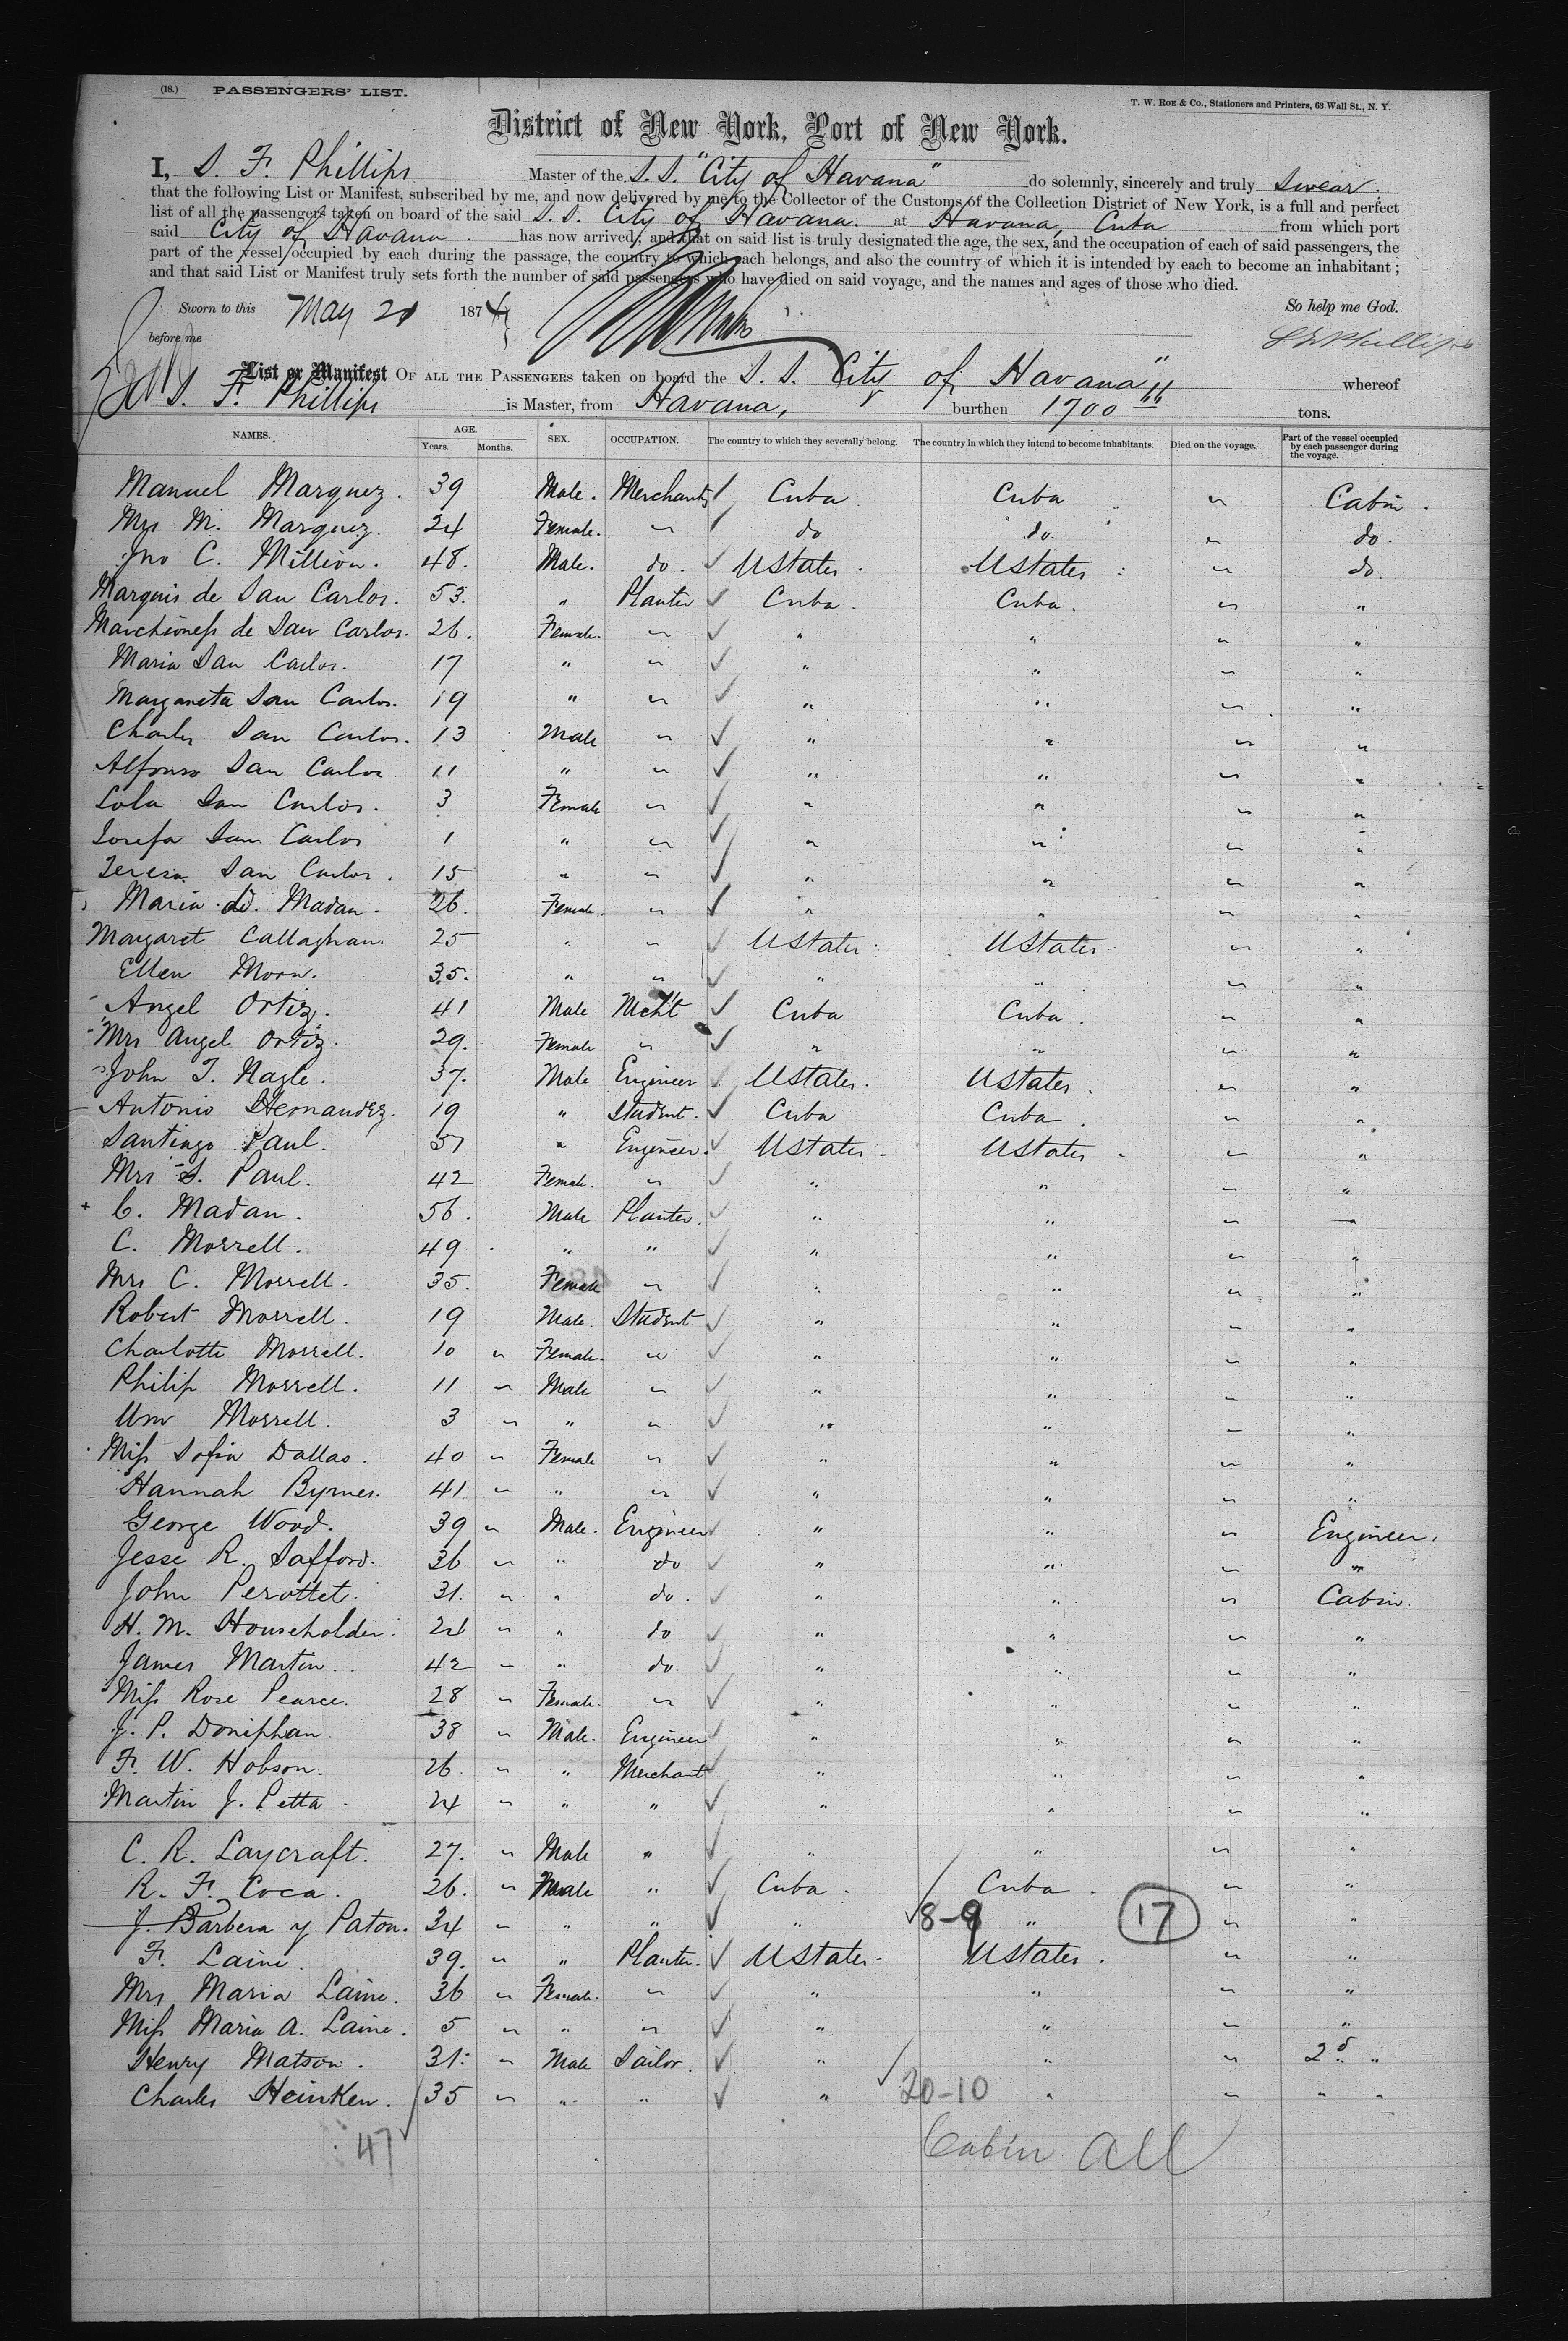 (18.) PASSENGERS' LIST.
T. W. ROE & Co., Stationers and Printers, 63 Wall St., N. Y.
District of New York, Port of New York.
I, S. F. Phillips Master of the S. S. "City of Havana" do solemnly, sincerely and truly Swear.
that the following List or Manifest, subscribed by me, and now delivered by me to the Collector of the Customs of the Collection District of New York, is a full and perfect
list of all the passengers taken on board of the said S. S. City of Havana. at Havana, Cuba from which port
said City of Havana has now arrived; and that on said list is truly designated the age, the sex, and the occupation of each of said passengers, the
part of the vessel occupied by each during the passage, the country to which each belongs, and also the country of which it is intended by each to become an inhabitant;
and that said List or Manifest truly sets forth the number of said passengers who have died on said voyage, and the names and ages of those who died.
Sworn to this May 21 1874 So help me God.
before me S F Phillips
List or Manifest OF ALL THE PASSENGERS taken on board the S. S. City of Havana" whereof
S. F. Phillips is Master, from Havana, burthen 1700 tons.
NAMES. AGE. Years. Months. SEX. OCCUPATION. The country to which they severally belong. The country in which they intend to become inhabitants. Died on the voyage. Part of the vessel occupied by each passenger during the voyage.
Manuel Marquez. 39 Male. Merchant Cuba Cuba " Cabin.
Mrs M. Marquez. 24 Female. " do do. " do.
Jno C. Million. 48. Male. do. UStates. UStates " do.
Marquis de San Carlos. 53. " Planter Cuba. Cuba. " "
Marchioness de San Carlos. 26. Female. " " " " "
Maria San Carlos. 17 " " " " " "
Margareta San Carlos. 19 " " " " " "
Charles San Carlos. 13 Male " " " " "
Alfonso San Carlos 11 " " " " " "
Lola San Carlos. 3 Female " " " " "
Josefa San Carlos 1 " " " " " "
Teresa San Carlos. 15 " " " " " "
Maria Madan. 26. Female. " " " " "
Margaret Callaghan 25 " " UStates. UStates. " "
Ellen Moon. 35. " " " " " "
Angel Ortiz. 41 Male Mcht Cuba Cuba. " "
Mrs Angel Ortiz. 29. Female " " " " "
John T. Nagle. 37. Male Engineer UStates. UStates. " "
Antonio Hernandez. 19 " Student. Cuba Cuba. " "
Santiago Paul. 51 " Engineer. UStates. UStates. " "
Mrs S. Paul. 42 Female. " " " " "
C. Madan. 56. Male Planter. " " " "
C. Morrell. 49. " " " " " "
Mrs C. Morrell. 35. Female " " " " "
Robert Morrell. 19 Male. Student " " " "
Charlotte Morrell. 10 " Female. " " " " "
Philip Morrell. 11 " Male " " " " "
Wm Morrell. 3 " " " " " " "
Miss Sofia Dallas. 40 " Female " " " " "
Hannah Byrnes. 41 " " " " " " "
George Wood. 39 " Male. Engineer " " " Engineer.
Jesse R. Safford. 36 " " do " " " "
John Perottet. 31. " " do. " " " Cabin.
H. M. Householder. 24 " " do " " " "
James Martin. 42 " " do. " " " "
Miss Rose Pearce. 28 " Female. " " " " "
J. P. Doniphan. 38 " Male. Engineer " " " "
F. W. Hobson. 26. " " Merchant " " " "
Martin J. Petta. 24 " " " " " " "
C. R. Laycraft. 27. " Male " " " " "
R. F. Coca. 26. " Male " Cuba. Cuba. " "
J. Barbera y Paton. 34 " " " " 8-9 " 17 " "
F. Laine. 39. " " Planter. UStates. UStates. " "
Mrs Maria Laine. 36 " Female. " " " " "
Miss Maria A. Laine. 5 " " " " " " "
Henry Matson. 31. " Male Sailor. " " " 2d "
Charles Heinken. 35 " " " " 20-10 " " " "
47 Cabin All